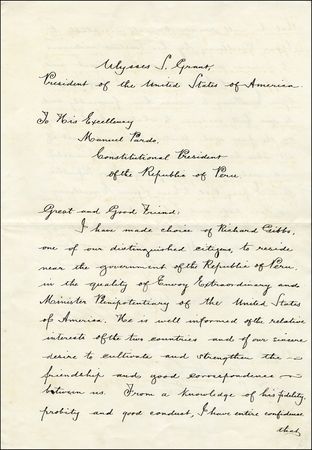 Ulysses S. Grant,
President of the United States of America
To His Excellency
Manuel Pardo,
Constitutional President
of the Republic of Peru.
Great and Good Friend:
I have made choice of Richard Gibbs,
one of our distinguished citizens, to reside
near the government of the Republic of Peru,
in the quality of Envoy Extraordinary and
Minister Plenipotentiary of the United States
of America. He is well informed of the relative
interests of the two countries and of our sincere
desire to cultivate and strengthen the
friendship and good correspondence
between us. From a knowledge of his fidelity,
probity and good conduct, I have entire confidence
that